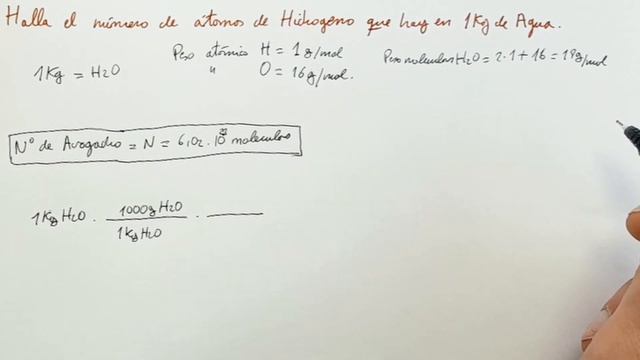 Halla el número de átomos de Hidrógeno que hay en 1Kg de Agua.
1Kg = H2O
Peso atómico H = 1 g/mol
" O = 16 g/mol.
Peso molecular H2O = 2·1 + 16 = 18 g/mol
Nº de Avogadro = N = 6,02·10²³ moleculas
1Kg H2O · 1000g H2O / 1kg H2O ·